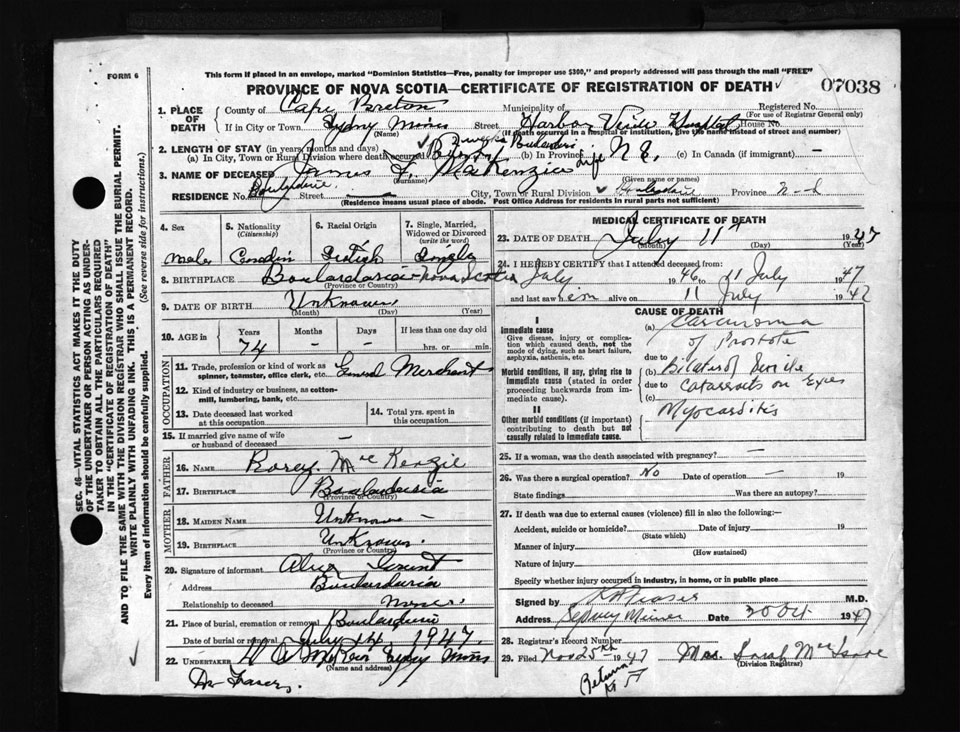 FORM 6
This form if placed in an envelope, marked "Dominion Statistics—Free, penalty for improper use $300," and properly addressed will pass through the mail "FREE"
PROVINCE OF NOVA SCOTIA—CERTIFICATE OF REGISTRATION OF DEATH
07038
SEC. 46—VITAL STATISTICS ACT MAKES IT THE DUTY
OF THE UNDERTAKER OR PERSON ACTING AS UNDER-
TAKER TO OBTAIN ALL THE PARTICULARS REQUIRED
IN THE "CERTIFICATE OF REGISTRATION OF DEATH"
AND TO FILE THE SAME WITH THE DIVISION REGISTRAR WHO SHALL ISSUE THE BURIAL PERMIT.
WRITE PLAINLY WITH UNFADING INK. THIS IS A PERMANENT RECORD.
Every item of information should be carefully supplied. (See reverse side for instructions.)
1. PLACE OF DEATH County of Cape Breton Municipality of Registered No.
(For use of Registrar General only)
If in City or Town Sydney Mines Street Harbor View Hospital House No.
(Name) (If death occurred in a hospital or institution, give the name instead of street and number)
2. LENGTH OF STAY (in years, months and days)
(a) In City, Town or Rural Division where death occurred 2 weeks (b) In Province Life N.S. (c) In Canada (if immigrant) —
3. NAME OF DECEASED James F. MacKenzie
(Surname) (Given name or names)
RESIDENCE No. Street — City, Town or Rural Division Province N-S
(Residence means usual place of abode. Post Office Address for residents in rural parts not sufficient)
4. Sex
Male
5. Nationality
(Citizenship)
6. Racial Origin
7. Single, Married, Widowed or Divorced
(write the word)
Single
8. BIRTHPLACE Boulardarie Nova Scotia
(Province or Country)
9. DATE OF BIRTH Unknown
(Month) (Day) (Year)
10. AGE in Years Months Days If less than one day old
74 – – hrs. or min.
OCCUPATION
11. Trade, profession or kind of work as spinner, teamster, office clerk, etc. General Merchant
12. Kind of industry or business, as cotton-mill, lumbering, bank, etc.
13. Date deceased last worked at this occupation
14. Total yrs. spent in this occupation
15. If married give name of wife or husband of deceased —
FATHER
16. NAME MacKenzie
17. BIRTHPLACE Boulardarie
(Province or Country)
MOTHER
18. MAIDEN NAME Unknown –
19. BIRTHPLACE Unknown
(Province or Country)
20. Signature of informant
Address Boulardarie
Relationship to deceased
21. Place of burial, cremation or removal Boulardarie
Date of burial or removal July 14 1947
22. UNDERTAKER Sydney Mines
(Name and address)
Dr Fraser
MEDICAL CERTIFICATE OF DEATH
23. DATE OF DEATH July 11th 1947
(Month) (Day) (Year)
24. I HEREBY CERTIFY that I attended deceased from:
July 1946 to 11 July 1947
and last saw him alive on 11 July 1947
CAUSE OF DEATH
I
Immediate cause
Give disease, injury or complication which caused death, not the mode of dying, such as heart failure, asphyxia, asthenia, etc.
(a) Carcinoma
of Prostate
Morbid conditions, if any, giving rise to immediate cause (stated in order proceeding backwards from immediate cause).
due to
(b) Bilateral Senile
due to Catarracts on Eyes
(c)
II
Other morbid conditions (if important) contributing to death but not causally related to immediate cause.
Myocarditis
25. If a woman, was the death associated with pregnancy? —
26. Was there a surgical operation? No Date of operation — 19
State findings Was there an autopsy?
27. If death was due to external causes (violence) fill in also the following:—
Accident, suicide or homicide? Date of injury 19
(State which)
Manner of injury
(How sustained)
Nature of injury
Specify whether injury occurred in industry, in home, or in public place
Signed by Fraser M.D.
Address Sydney Mines Date 20 Oct 1947
28. Registrar's Record Number
29. Filed Nov 25th 1947 Mrs. Sarah
(Division Registrar)